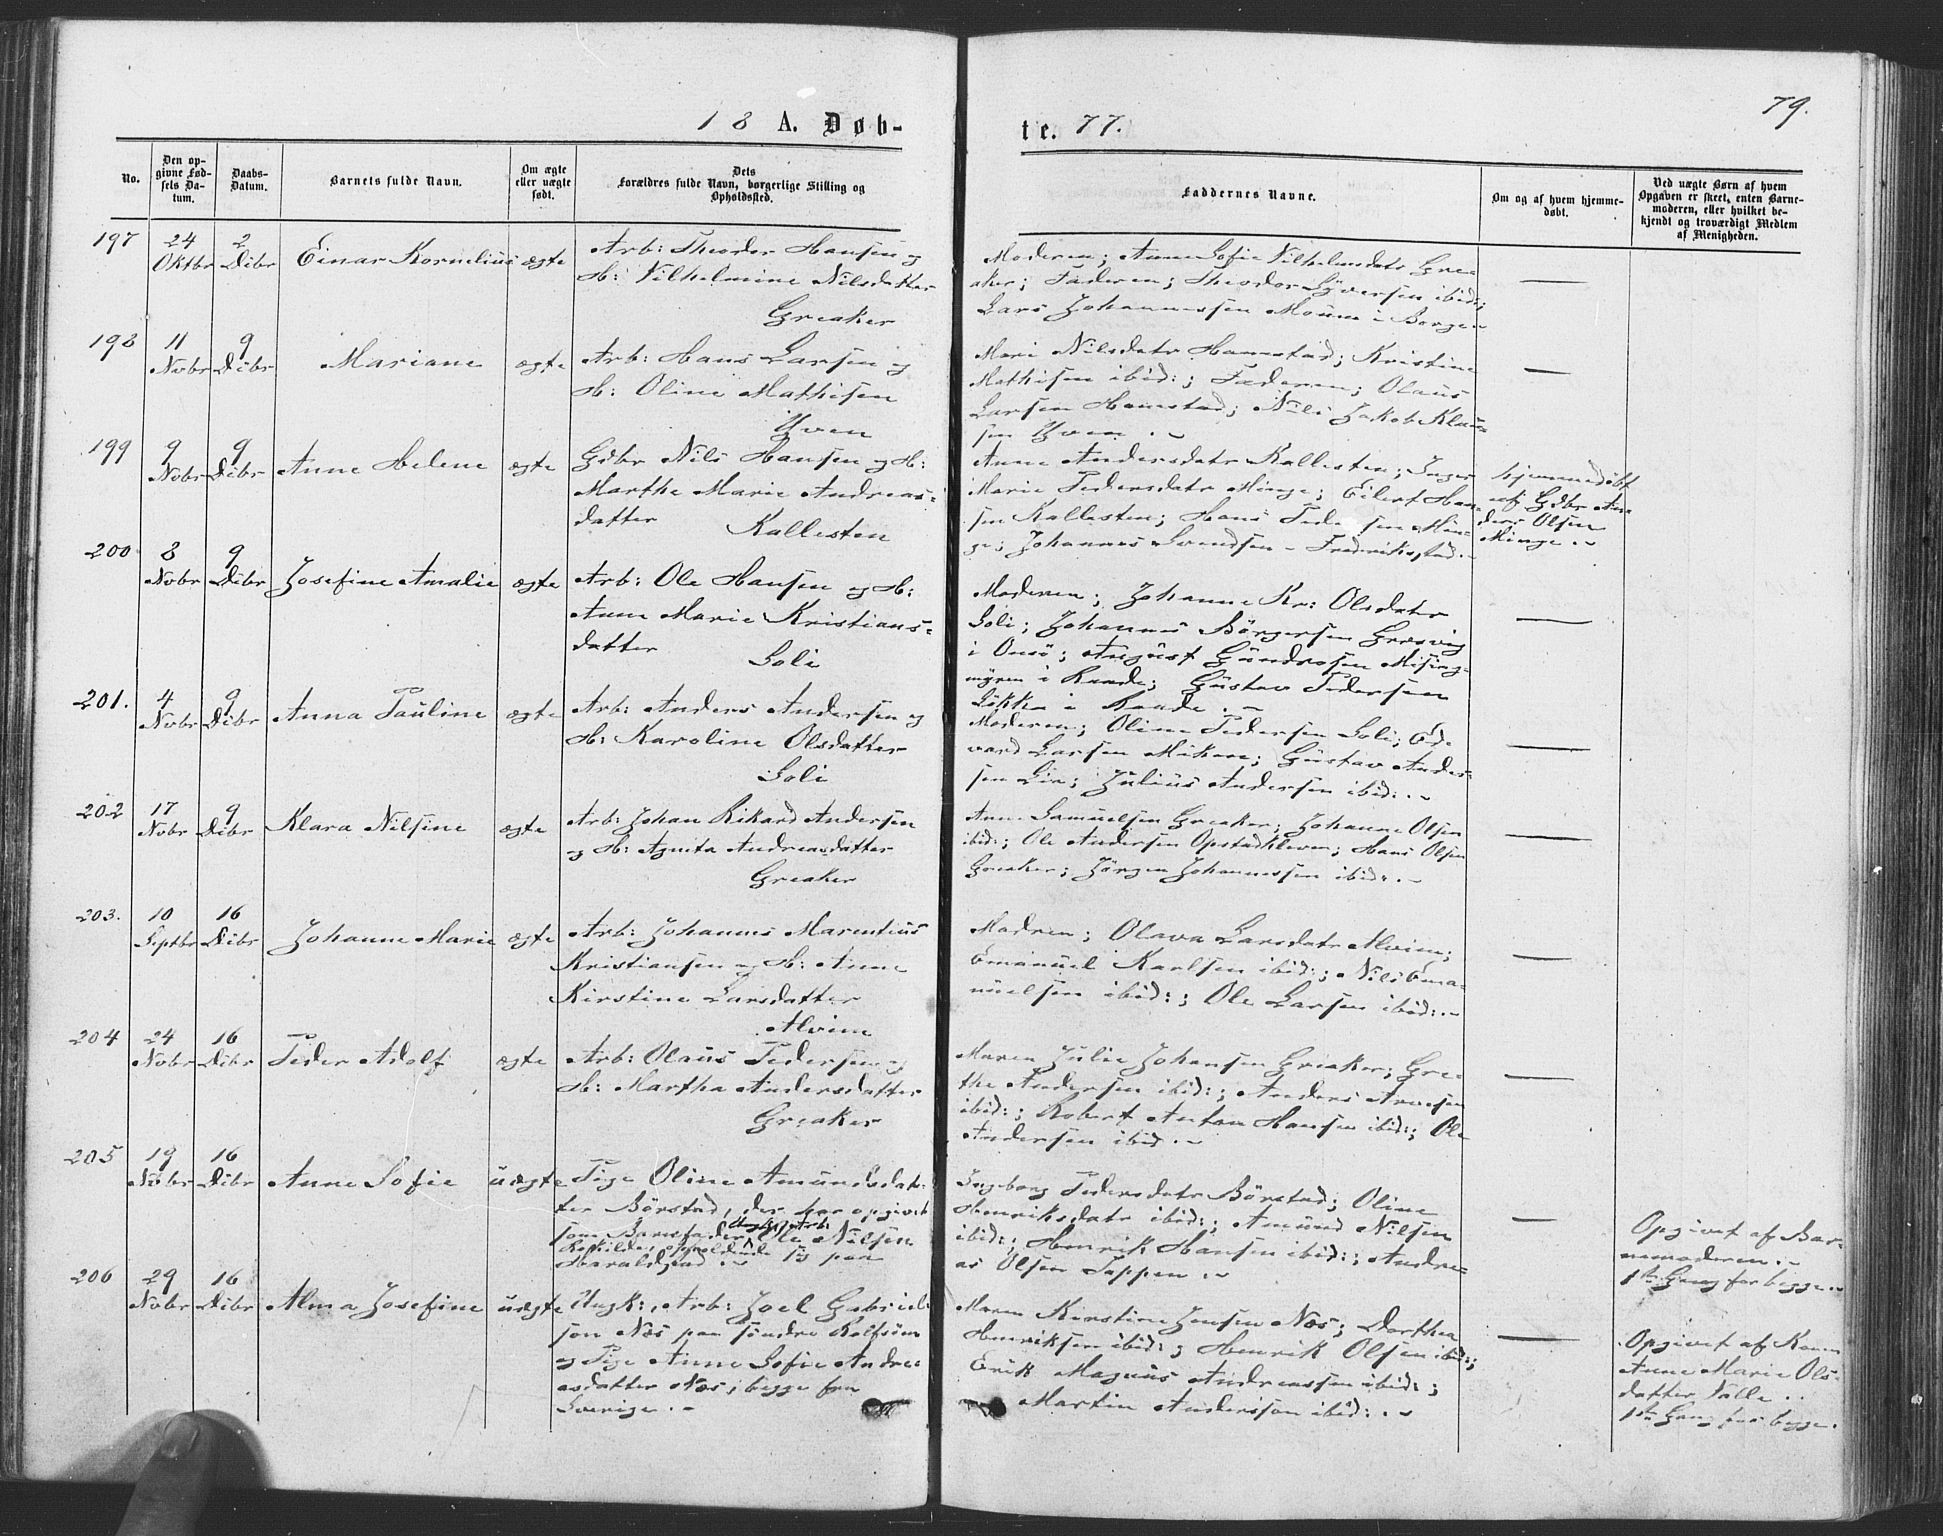 79.
18 A. Døb-
te. 77.
No.
Den op-
givne Fød-
sels Da-
tum.
Daabs-
Datum.
Barnets fulde Navn.
Om ægte
eller uægte
født.
Dets
Forældres fulde Navn, borgerlige Stilling og
Opholdssted.
Faddernes Navne.
Om og af hvem hjemme-
døbt.
Ved uægte Børn af hvem
Opgaven er skeet, enten Barne-
moderen, eller hvilket be-
kjendt og troværdigt Medlem
af Menigheden.
197
24
Oktbr
2
Dibr
Einar Kornelius
ægte
Arb: Theodor Hansen og
H: Vilhelmine Nilsdatter
Greaker
Moderen; Anne Sofie Vilhelmsdatr Grea-
ker; Faderen; Theodor Syversen ibid:;
Lars Johannessen Moum i Borge.-
198
11
Nvbr
9
Dibr
Mariane
ægte
Arb: Hans Larsen og
H: Oline Mathisen
Yven
Mari Nilsdatr Hannestad; Kristine
Mathisen ibid:; Faderen; Olaus
Larsen Hannestad; Nils Jakob Klau-
sen Yven.-
199
9
Nvbr
9
Dibr
Anne Helene
ægte
Gdbr Nils Hansen og H:
Marthe Marie Andreas-
datter
Kallesten
Anne Andersdatr Kallesten; Inger
Marie Pedersdatr Minge; Eilert Han-
sen Kallesten; Hans Pedersen Min-
ge; Johannes Svendsen - Fredrikstad.-
hjemmedøbt
af Gdbr An-
ders Olsen
Minge.-
200
8
Nvbr
9
Dibr
Josefine Amalie
ægte
Arb: Ole Hansen og H:
Anne Marie Kristians-
datter
Soli
Moderen; Johanne Kr: Olsdatr
Soli; Johannes Børgersen Gresvig
i Onsø; August Gundersen Mising-
myren i Raade; Gustav Pedersen
Løkke i Raade.-
201.
4
Nvbr
9
Dibr
Anna Pauline
ægte
Arb: Anders Andersen og
H: Karoline Olsdatter
Soli
Moderen; Oline Pedersen Soli; Ed-
vard Larsen Miken; Gustav Ander-
sen Lie; Julius Andersen ibid:.-
202
17
Nvbr
9
Dibr
Klara Nilsine
ægte
Arb: Johan Rikard Andersen
og H: Agnita Andreasdatter
Greaker
Anne Samuelsen Greaker; Johanne Olsen
ibid:; Ole Andersen Opstadkleven; Hans Olsen
Greaker; Jørgen Johannessen ibid:.-
203.
10
Septbr
16
Dibr
Johanne Marie
ægte
Arb: Johannes Marentius
Kristiansen og H: Anne
Kirstine Larsdatter
Alvim
Modren; Olava Larsdatr Alvim;
Emanuel Karlsen ibid:; Nils Ema-
nuelsen ibid:; Ole Larsen ibid:.-
204
24
Nvbr
16
Dibr
Peder Adolf
ægte
Arb: Olaus Pedersen og
H: Martha Andersdatter
Greaker
Maren Julie Johansen Greaker; Gre-
the Andersen ibid:; Anders Arnesen
ibid:; Robert Anton Hansen ibid:; Ole
Andersen ibid.-
205
19
Nvbr
16
Dibr
Anne Sofie
uægte
Pige Oline Amundsdat-
ter Børstad, der har opgivet
som Barnefader Ungk: Arb: Ole Nilsen
Roskilde, opholdende sig paa
Haraldstad.-
Ingeborg Pedersdatr Børstad; Oline
Henriksdatr ibid:; Amund Nilsen
ibid:; Henrik Hansen ibid:; Andre-
as Olsen Tappen.-
Opgivet af Bar-
nemoderen.-
1ste Gang for begge.-
206
29
Nvbr
16
Dibr
Alma Josefine
uægte
Ungk:, Arb: Joel Gabriel-
son Næs paa søndre Rolfsøen
og Pige Anne Sofie Andre-
asdatter Næs, begge fra
Sverige.-
Maren Kirstine Jensen Næs; Dorthea
Henriksen ibid:; Henrik Olsen ibid:;
Erik Magnus Andreassen ibid:;
Martin Andersson ibid:.-
Opgivet af Konen
Anne Marie Ols-
datter Valle.
1ste Gang for begge.